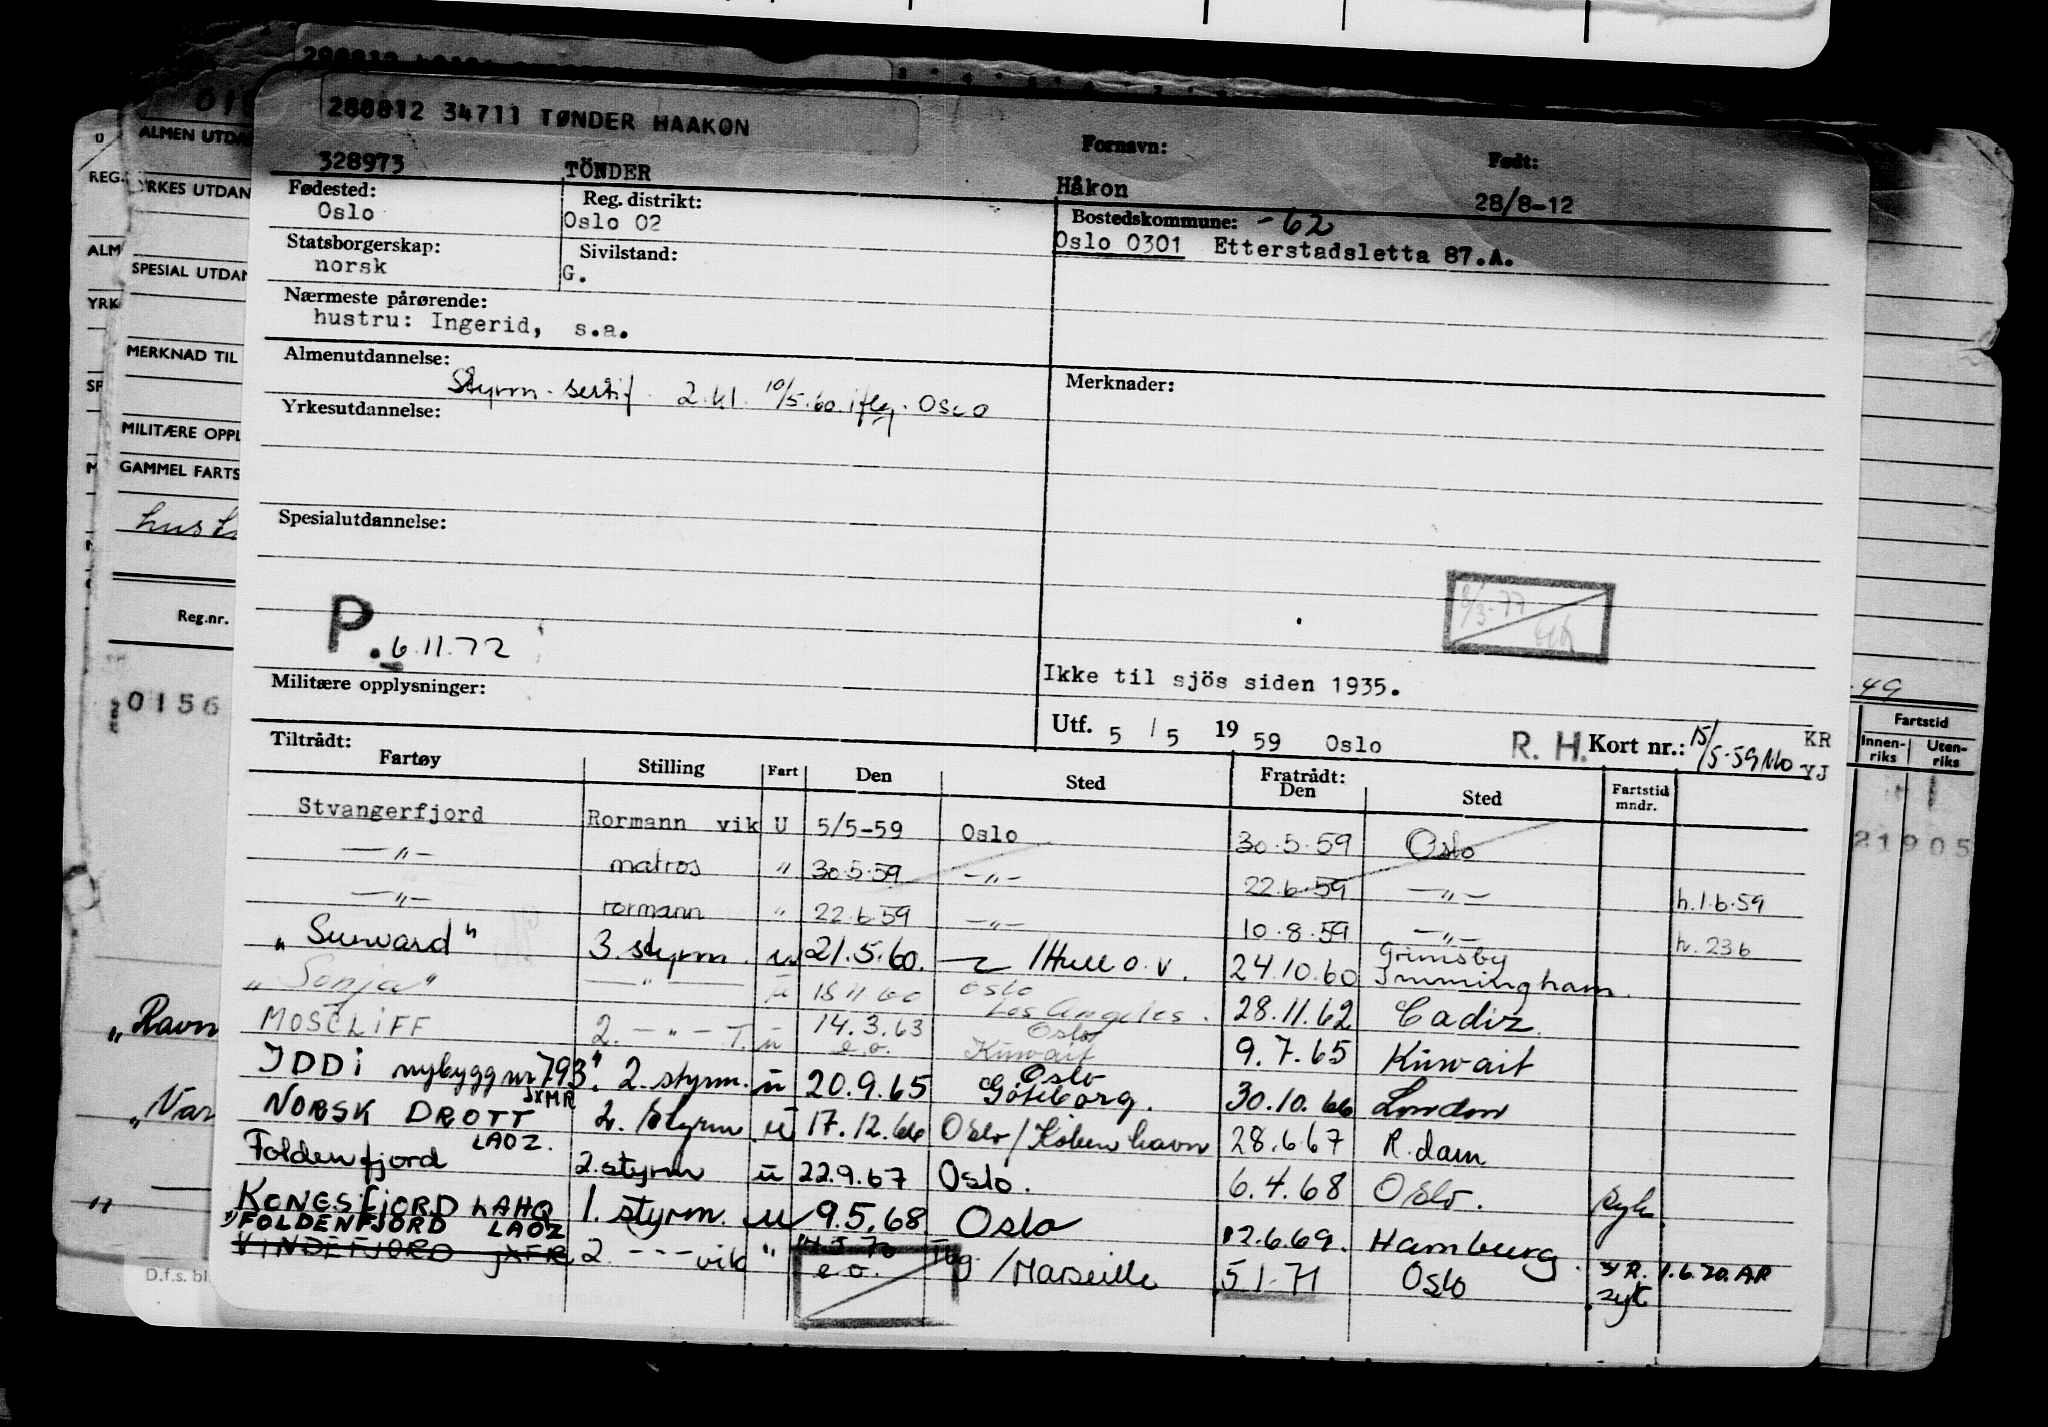 280812 34711 TØNDER HAAKON
328973 TÖNDER Fornavn: Håkon Født: 28/8-12
Fødested: Oslo Reg. distrikt: Oslo 02 Bostedskommune: -62
Oslo 0301 Etterstadsletta 87.A.
Statsborgerskap: norsk Sivilstand: G.
Nærmeste pårørende:
hustru: Ingerid, s.a.
Almenutdannelse: Merknader:
Styrm. sertif. 2.kl. 10/5.60. iflg. Oslo
Yrkesutdannelse:
Spesialutdannelse:
P. 6.11.72
8/3-77
Ikke til sjös siden 1935.
Militære opplysninger:
Utf. 5 / 5 19 59 Oslo R. H. Kort nr.: 15/5-59 KR
VJ
Tiltrådt: Fratrådt:
Fartøy Stilling Fart Den Sted Den Sted Fartstid mndr.
Stvangerfjord Rormann vik U 5/5-59 Oslo 30.5.59 Oslo
—"— matros " 30.5.59 —"— 22.6.59 —"— h.1.6.59
—"— rormann " 22.6.59 —"— 10.8.59 —"— h. 236
"Sunvard" 3. styrm. u 21.5.60. Hull o.v. 24.10.60 Grimsby Immingham.
"Sonja" —"— u 18 11 60 Oslo Los Angeles. 28.11.62 Cadiz.
MOSCLIFF 2. —"— T. u 14.3.63 e.o. Oslo Kuwait 9.7.65 Kuwait
IDDI nybygg nr 793". JXMR 2. styrm. u 20.9.65 Oslo Göteborg. 30.10.66 London
NORSK DROTT 2. styrm u 17.12.66 Oslo/København 28.6.67 R.dam
Foldenfjord LAOZ. 2. styrm u 22.9.67 Oslo. 6.4.68 Oslo. syk.
KONGSFJORD LAHQ 1. styrm. u 9.5.68 Oslo 12.6.69. Hamburg.
"FOLDENFJORD LAOZ
VINDEFJORD JXFR 2. --- vik " e.o. Tbg/Marseille 5.1.71 Oslo syk R. 1.6.70. AR
ALMEN UTDA
YRKES UTDAN
SPESIAL UTDAN
MERKNAD TIL
MILITÆRE OPPL
GAMMEL FARTS
Reg.nr.
0156
"Ravn
"Var
D.f.s. bl.
REG.
ALM
YRK
.49
Fartstid
Innen-riks Uten-riks
21905